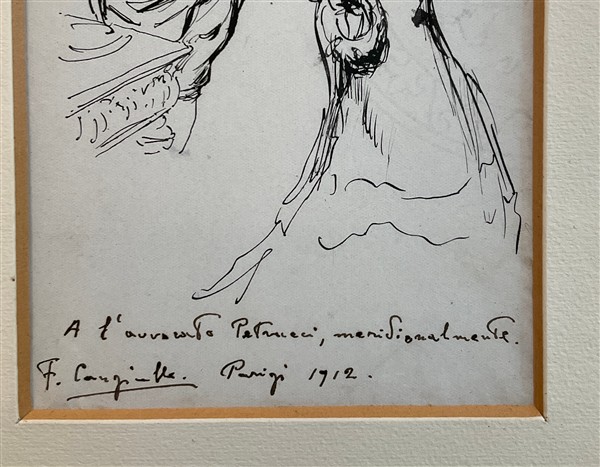 A l'avvocato Petrucci, meridionalmente.
F. Cangiullo. Parigi 1912.